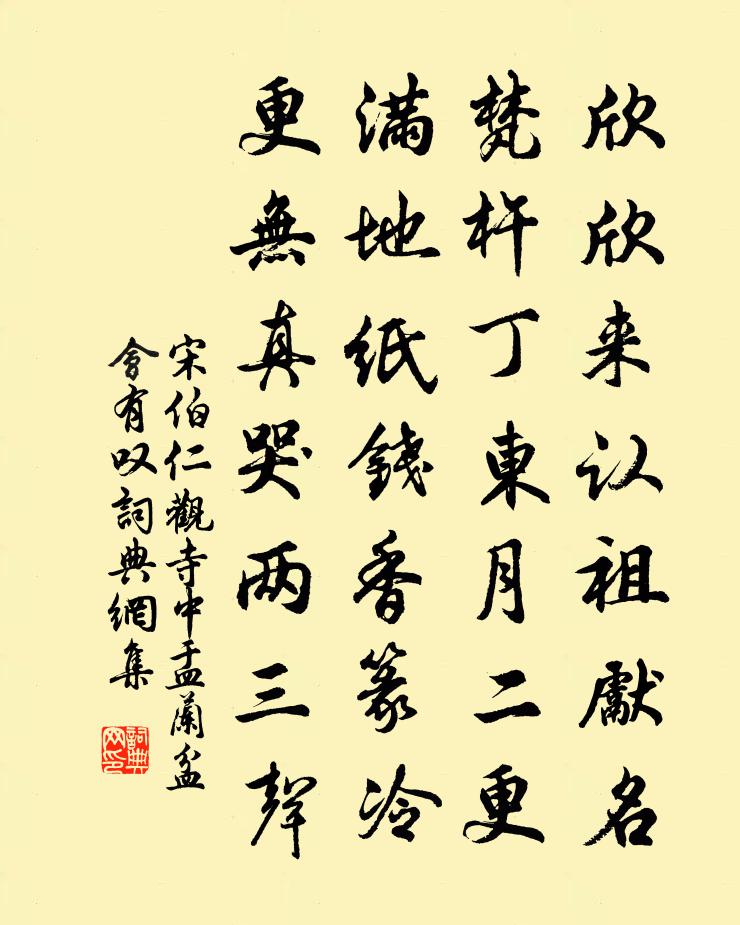 欣欣来认祖獻名
梵杵丁東月二更
满地紙錢香篆冷
更無真哭两三聲
宋伯仁觀寺中盂蘭盆
會有叹詞典網集
詞典网印